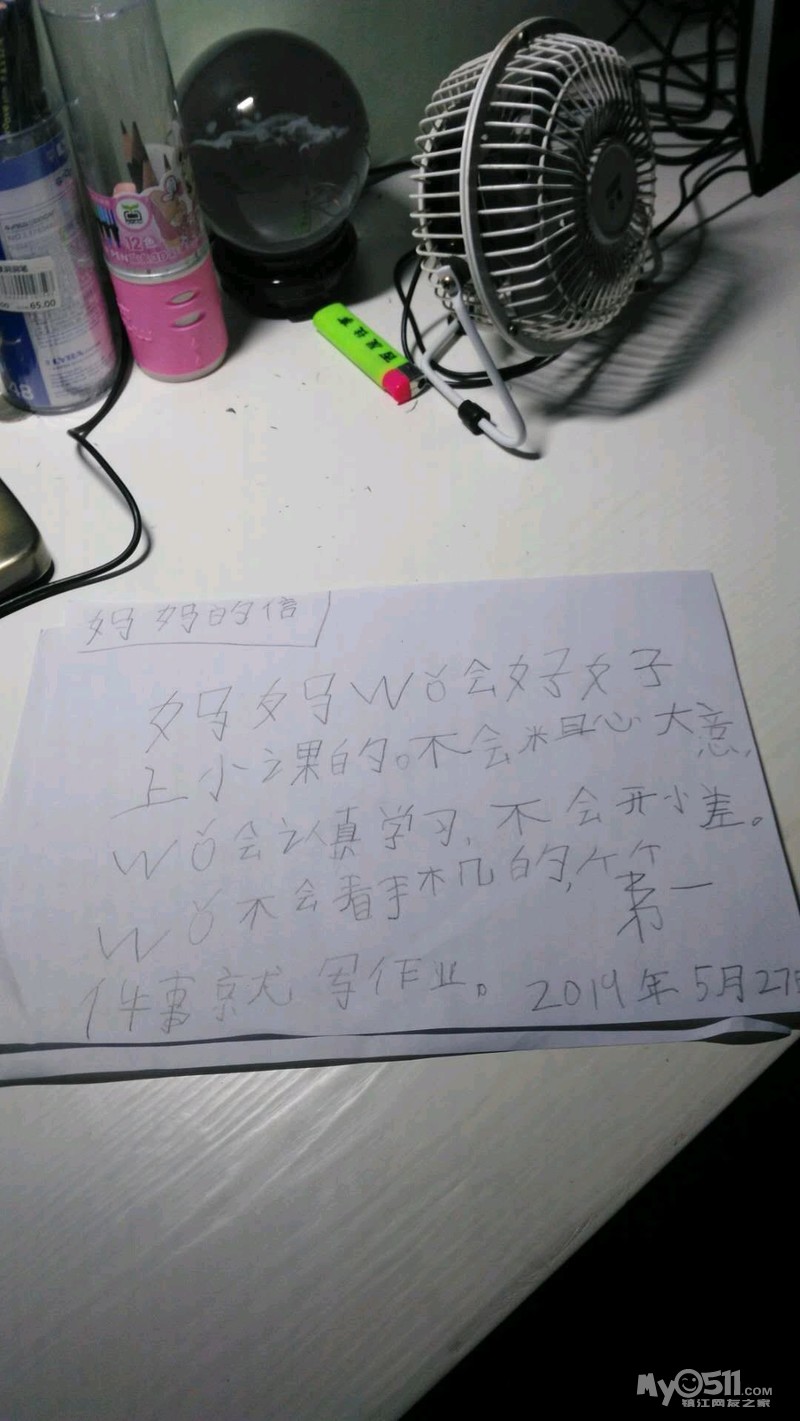 12色
65.00
LYRA
妈妈的信
妈妈Wǒ会好好
上小课的。不会粗心大意,
Wǒ会认真学习,不会开小差。
Wǒ不会看手机的,个个第一
件事就写作业。2019年5月27日
My0511.COM
镇江网友之家